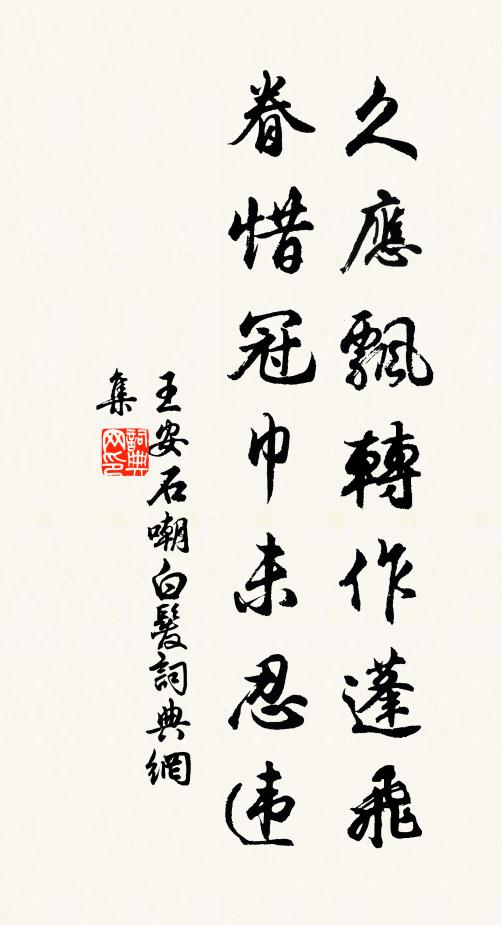 久應飄轉作蓬飛
眷惜冠巾未忍违
王安石嘲白髮詞典網
集
詞典
网印